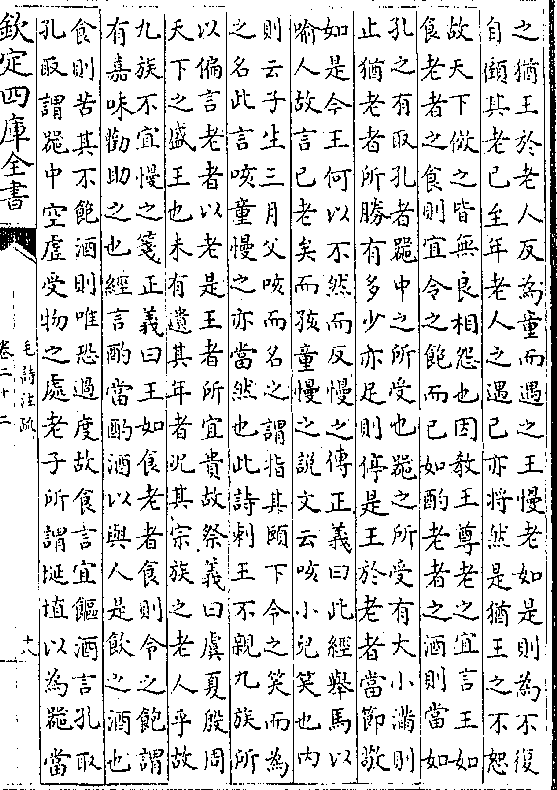 之猶王於老人反為童而遇之王慢老如是則為不復
自顧其老已至年老人之遇已亦將然是猶王之不恕
故天下傚之皆無良相怨也因教王尊老之宜言王如
食老者之食則宜令之飽而已如酌老者之酒則當如
孔之有取孔者器中之所受也器之所受有大小滿則
止猶老者所勝有多少亦足則停是王於老者當節敬
如是今王何以不然而反慢之傳正義曰此經舉馬以
喻人故言已老矣而孩童慢之説文云咳小兒笑也内
則云子生三月父咳而名之謂指其頤下令之笑而為
之名此言咳童慢之亦當然也此詩刺王不親九族所
以偏言老者以老是王者所宜貴故祭義曰虞夏殷周
天下之盛王也未有遺其年者况其宗族之老人乎故
九族不宜慢之箋正義曰王如食老者食則令之飽謂
有嘉味勸助之也經言酌當酌酒以與人是飲之酒也
食則苦其不飽酒則唯恐過度故食言宜饇酒言孔取
孔取謂器中空虛受物之處老子所謂埏埴以為器當
欽定四庫全書
毛詩注疏
卷二十二
十八